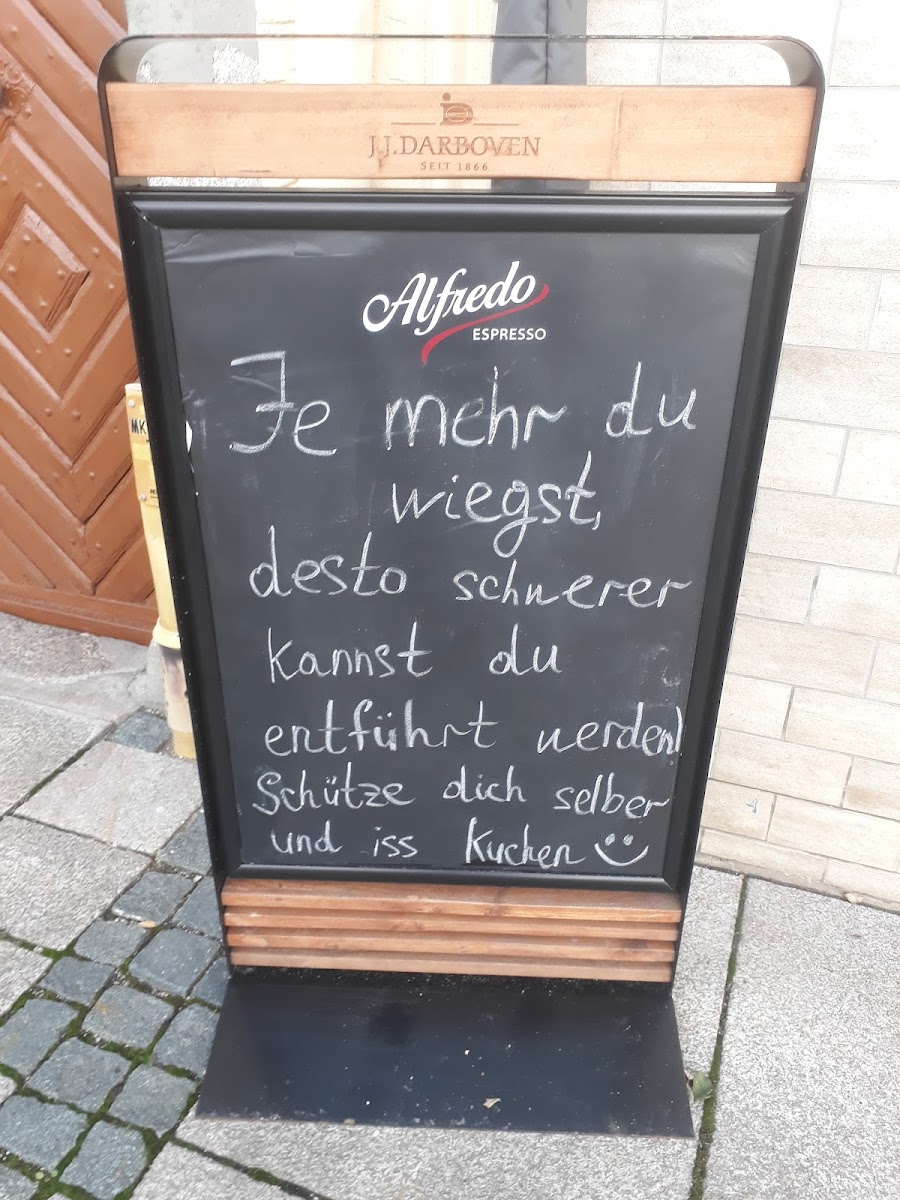 J.J.DARBOVEN
SEIT 1866
Alfredo
ESPRESSO
Je mehr du
wiegst,
desto schwerer
kannst du
entführt werden!
Schütze dich selber
und iss Kuchen
MK